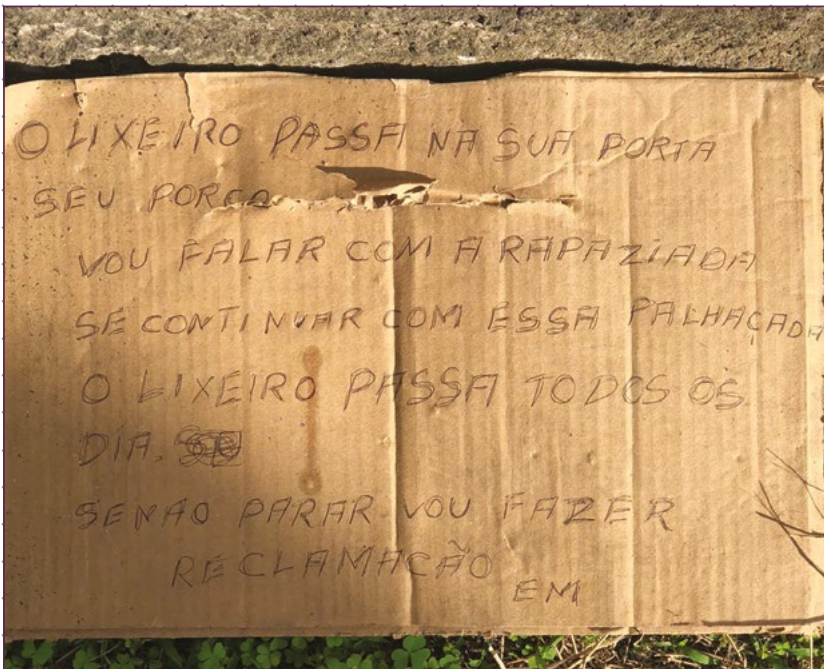 O LIXEIRO PASSA NA SUA PORTA
SEU PORCO
VOU FALAR COM A RAPAZIADA
SE CONTINUAR COM ESSA PALHAÇADA
O LIXEIRO PASSA TODOS OS
DIA.
SENAO PARAR VOU FAZER
RECLAMACÃO
EM